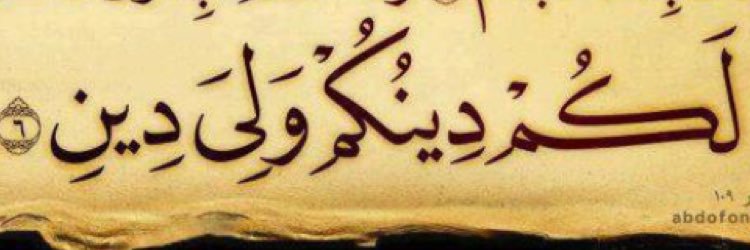 لَكُمْ دِينُكُمْ وَلِيَ دِينِ ٦
١٠٩
abdofon